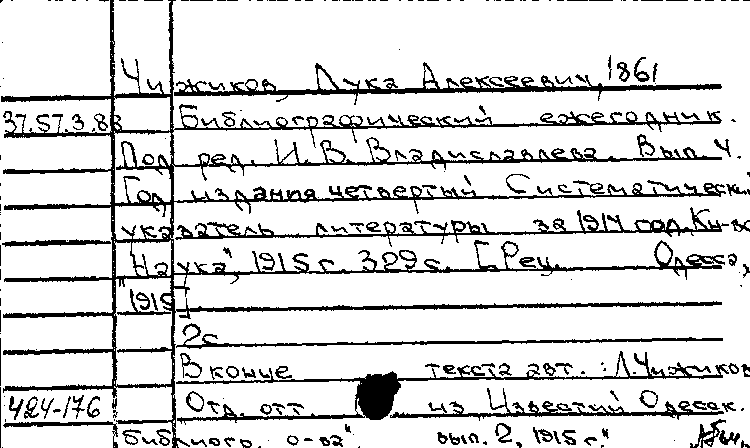 Чижиков, Лука Алексеевич, 1861
37.57.3.88 Библиографический ежегодник.
Под ред. И. В. Владиславлева. Вып. 4.
Год издания четвертый Систематический
указатель литературы за 1914 год. Кн-во
"Наука", 1915 г. 329 с. [Рец. Одесса,
1915]
2с
В конце текста авт.: Л. Чижиков
424-176 Отд. отт. из Известий Одесск.
библиогр. о-ва" вып. 2, 1915 г."